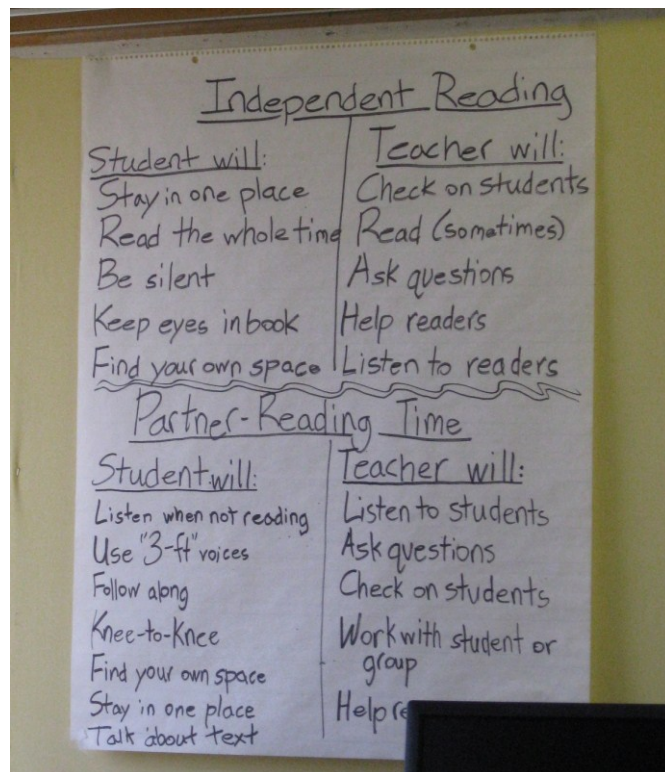 Independent Reading
Student will:
Stay in one place
Read the whole time
Be silent
Keep eyes in book
Find your own space
Teacher will:
Check on students
Read (sometimes)
Ask questions
Help readers
Listen to readers
Partner-Reading Time
Student will:
Listen when not reading
Use "3-ft" voices
Follow along
Knee-to-Knee
Find your own space
Stay in one place
Talk about text
Teacher will:
Listen to students
Ask questions
Check on students
Work with student or
group
Help